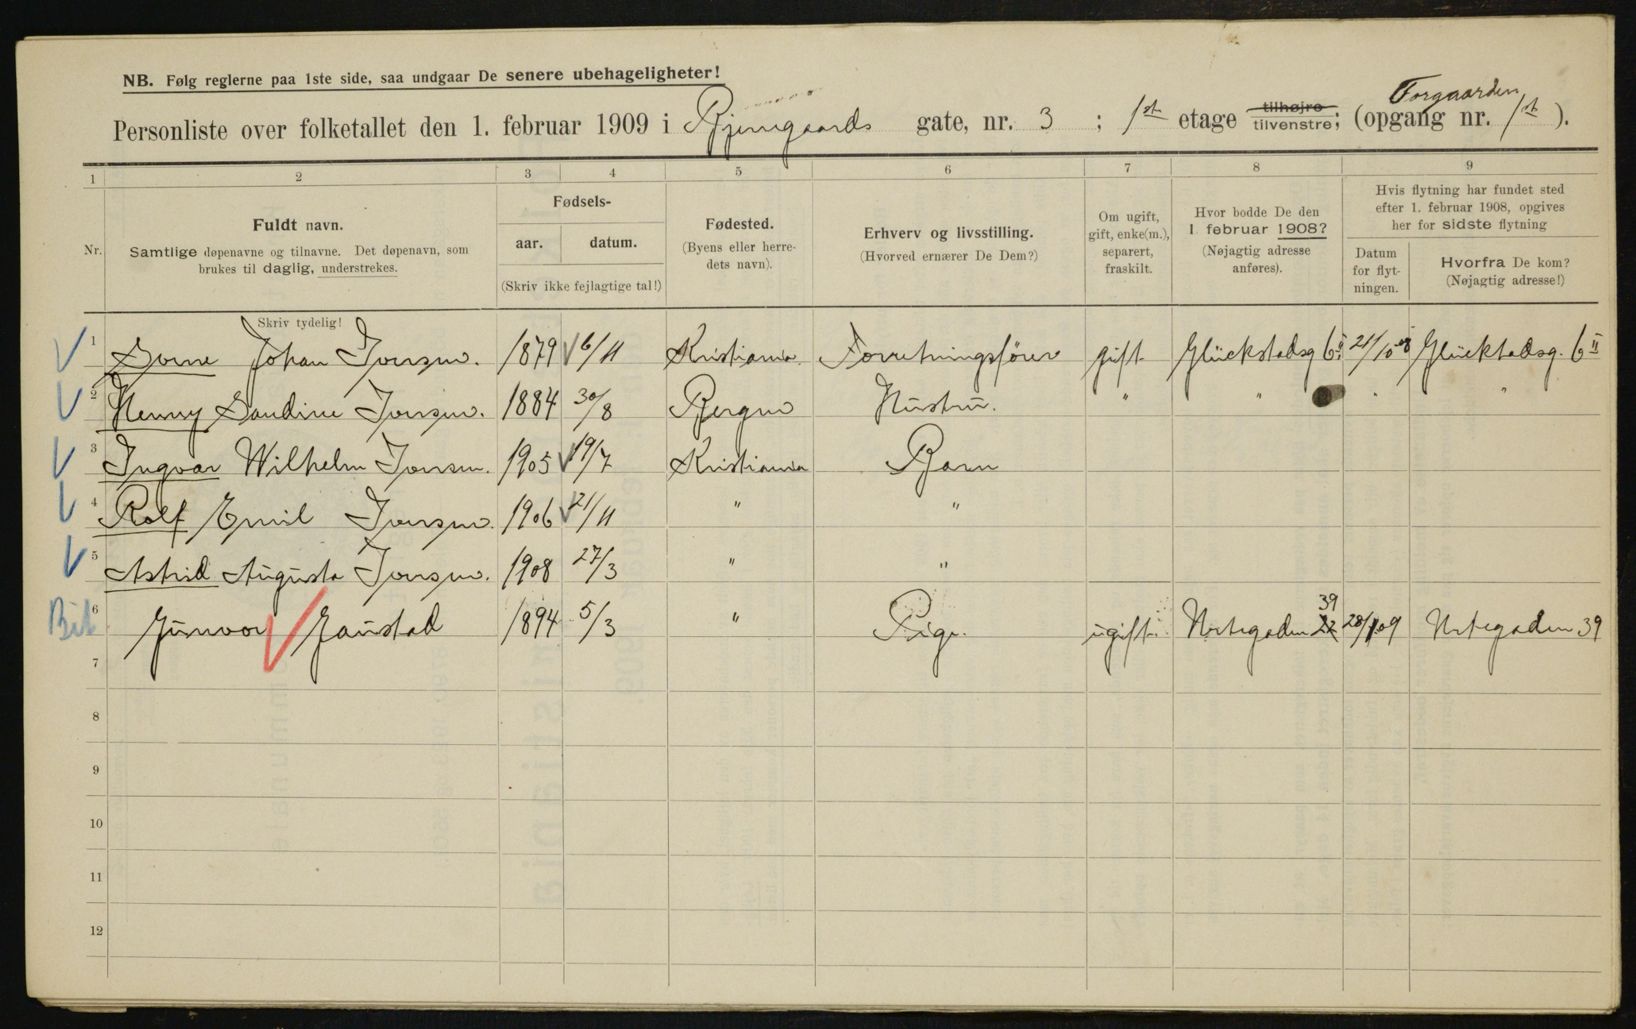 NB. Følg reglerne paa 1ste side, saa undgaar De senere ubehageligheter!
Forgaarden
Personliste over folketallet den 1. februar 1909 i Bjerregaards gate, nr. 3 ; 1st etage tilhøjre tilvenstre; (opgang nr. 1st ).
1 2 3 4 5 6 7 8 9
Nr.
Fuldt navn.
Samtlige døpenavne og tilnavne. Det døpenavn, som
brukes til daglig, understrekes.
Skriv tydelig!
Fødsels-
aar. datum.
(Skriv ikke fejlagtige tal!)
Fødested.
(Byens eller herre-
dets navn).
Erhverv og livsstilling.
(Hvorved ernærer De Dem?)
Om ugift,
gift, enke(m.),
separert,
fraskilt.
Hvor bodde De den
1 februar 1908?
(Nøjagtig adresse
anføres).
Hvis flytning har fundet sted
efter 1. februar 1908, opgives
her for sidste flytning
Datum
for flyt-
ningen.
Hvorfra De kom?
(Nøjagtig adresse!)
1 Johan Iversen. 1879 6/11 Kristiania Forretningsfører gift Glückstadsg 6 II 24/10 08 Glücktadsg. 6 II
2 Henny Iversen. 1884 30/8 Bergen Hustru. " " " "
3 Ingvar Wilhelm Iversen. 1905 19/7 Kristiania Barn
4 Rolf Emil Iversen. 1906 21/11 " "
5 Astrid Augusta Iversen. 1908 27/3 " "
6 Gunvor Gaustad 1894 5/3 " Pige. ugift. Nortegaden 22 39 28/1 09 Nortegaden 39
7
8
9
10
11
12